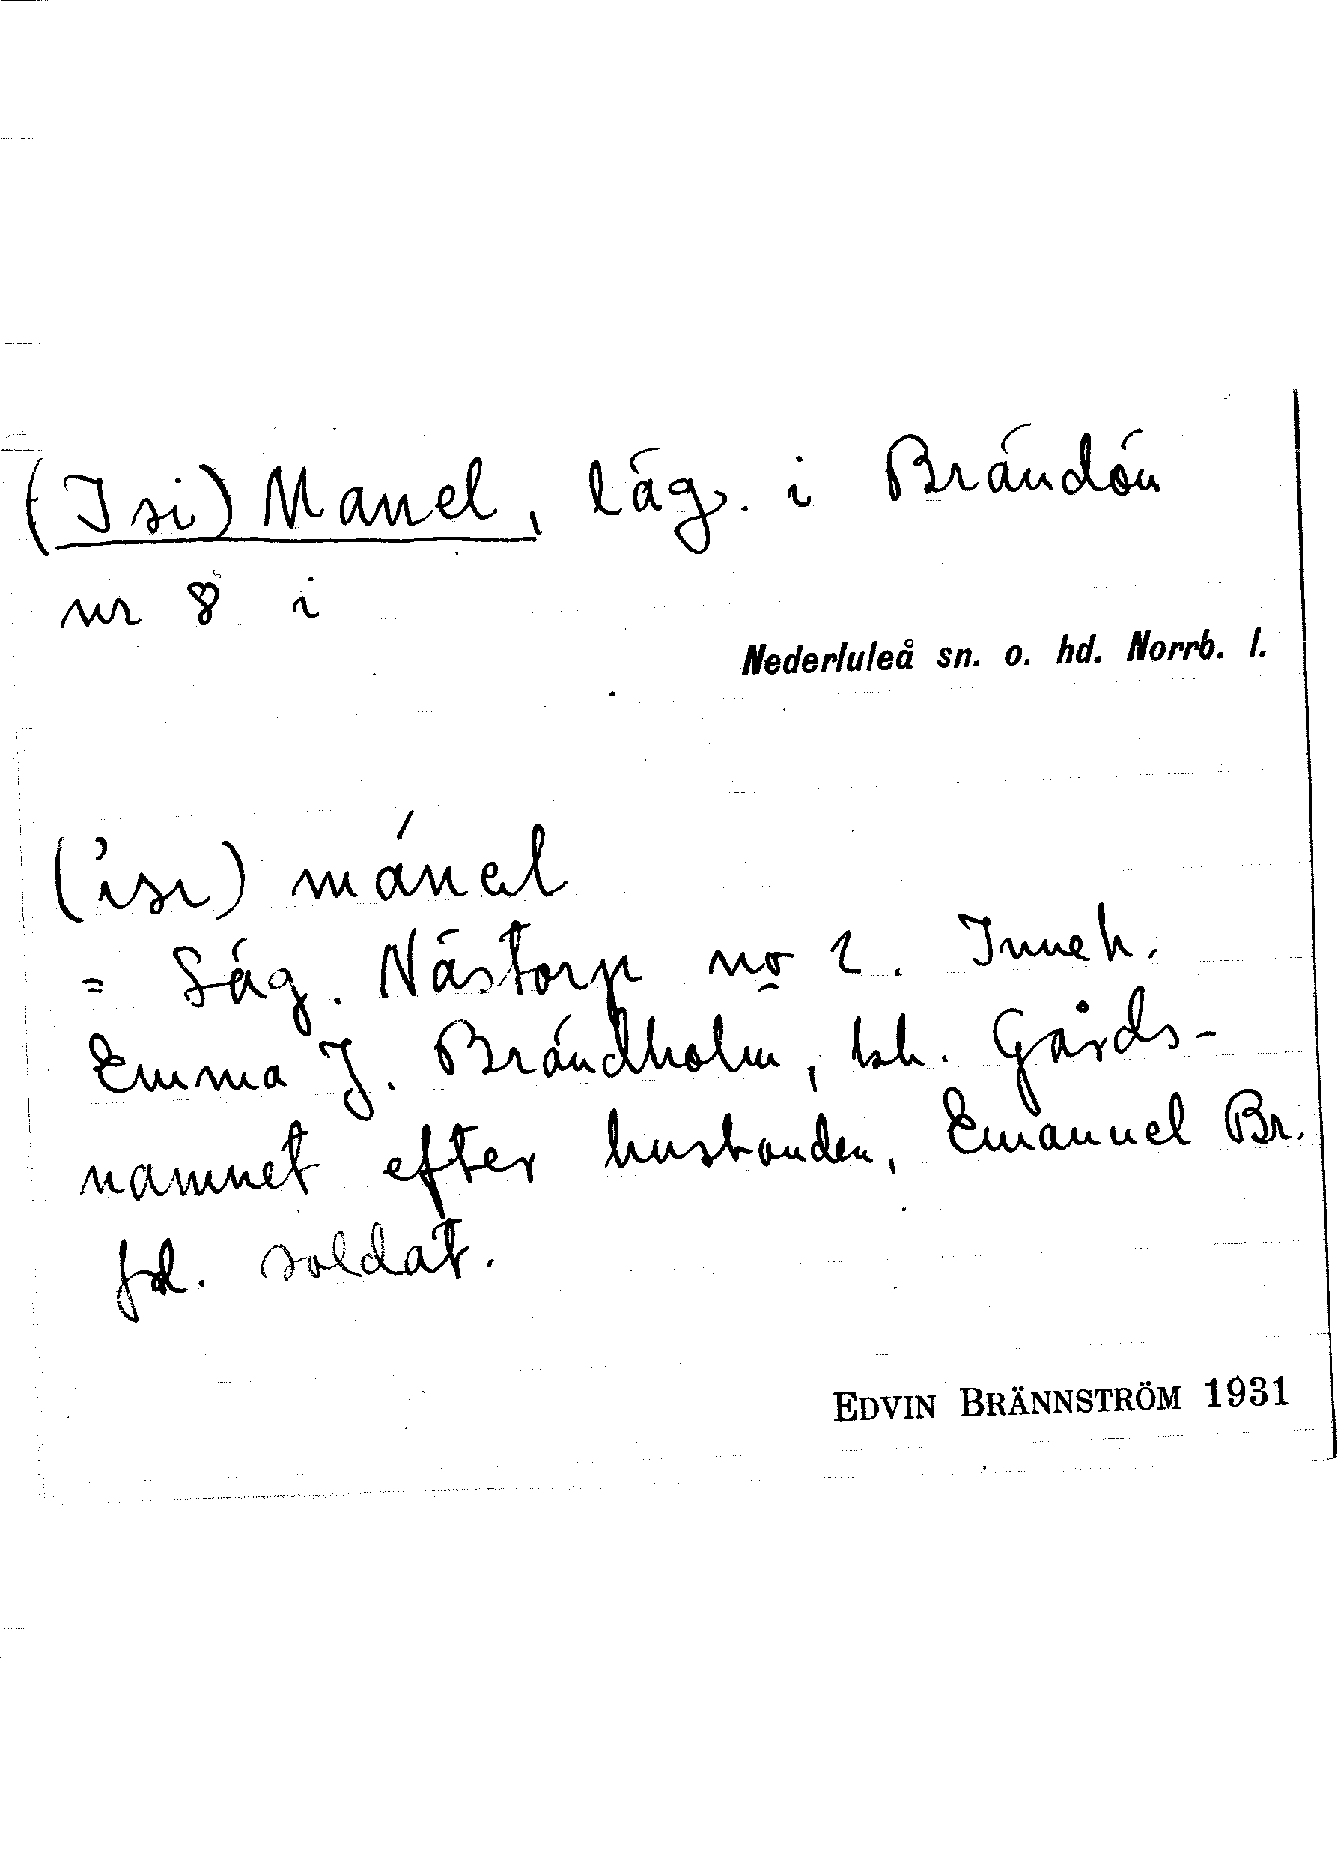 (Isi) Manel, läg. i Brändön
nr 8 i
Nederluleå sn. o. hd. Norrb. l.
('isi) mánel
= Läg. Nästorp no 2. Inneh.
Emma J. Brändholm, bh. Gårds-
namnet efter husbonden, Emanuel Br.
fd. soldat.
EDVIN BRÄNNSTRÖM 1931